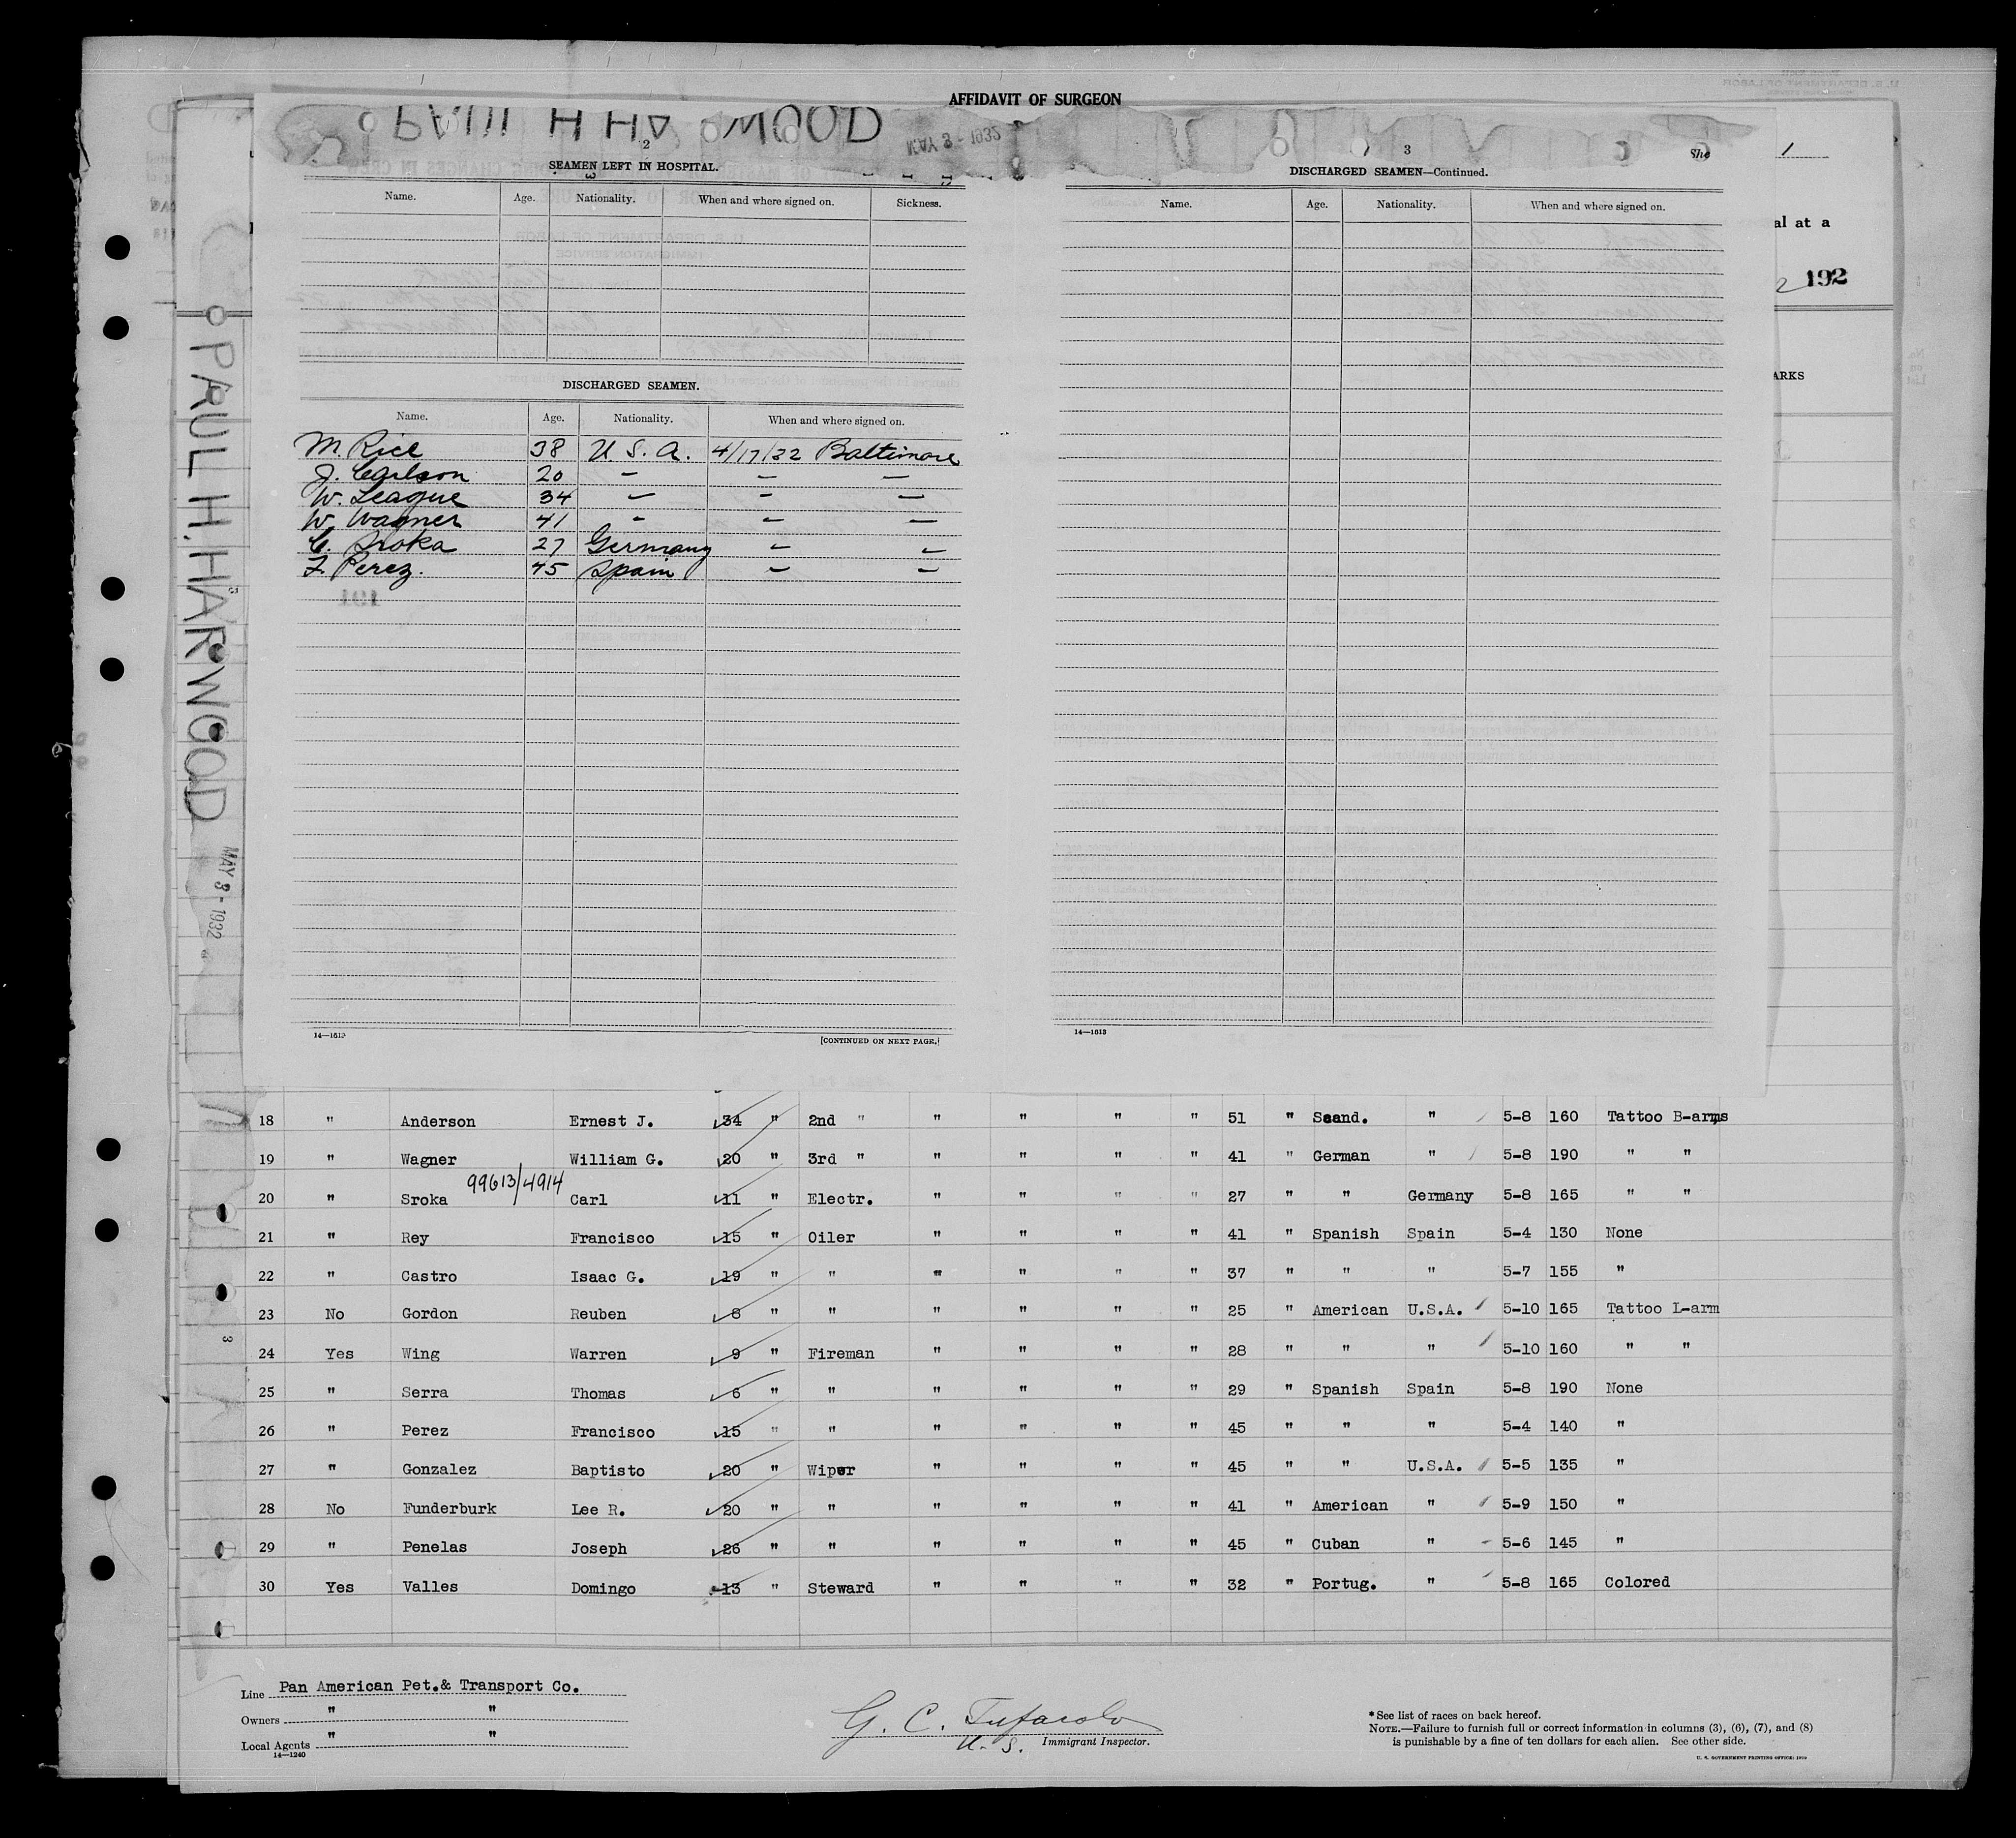 AFFIDAVIT OF SURGEON
MAY 3 - 1932
2
SEAMEN LEFT IN HOSPITAL.
Name. Age. Nationality. When and where signed on. Sickness.
DISCHARGED SEAMEN.
Name. Age. Nationality. When and where signed on.
M. Rice 38 U. S. A. 4/17/32 Baltimore
J. Carlson 20 — — —
W. League 34 — — —
W. Wagner 41 — — —
C. Sroka 27 Germany — —
F. Perez. 45 Spain — —
14—1613
[CONTINUED ON NEXT PAGE.]
3
DISCHARGED SEAMEN—Continued.
Name. Age. Nationality. When and where signed on.
14—1613
She
1
al at a
2 192
ARKS
PAUL H. HARWOOD
MAY 3 - 1932
3
18 " Anderson Ernest J. 34 " 2nd " " " " " 51 " Scand. " 5-8 160 Tattoo B-arms
19 " Wagner William G. 20 " 3rd " " " " " 41 " German " 5-8 190 " "
99613/4914
20 " Sroka Carl 11 " Electr. " " " " 27 " " Germany 5-8 165 " "
21 " Rey Francisco 15 " Oiler " " " " 41 " Spanish Spain 5-4 130 None
22 " Castro Isaac G. 19 " " " " " " 37 " " " 5-7 155 "
23 No Gordon Reuben 8 " " " " " " 25 " American U.S.A. 5-10 165 Tattoo L-arm
24 Yes Wing Warren 9 " Fireman " " " " 28 " " " 5-10 160 " "
25 " Serra Thomas 6 " " " " " " 29 " Spanish Spain 5-8 190 None
26 " Perez Francisco 15 " " " " " " 45 " " " 5-4 140 "
27 " Gonzalez Baptisto 20 " Wiper " " " " 45 " " U.S.A. 5-5 135 "
28 No Funderburk Lee R. 20 " " " " " " 41 " American " 5-9 150 "
29 " Penelas Joseph 26 " " " " " " 45 " Cuban " 5-6 145 "
30 Yes Valles Domingo 13 " Steward " " " " 32 " Portug. " 5-8 165 Colored
Line Pan American Pet.& Transport Co.
Owners " "
Local Agents " "
14—1240
G. C. Tufarolo
U. S. Immigrant Inspector.
*See list of races on back hereof.
NOTE.—Failure to furnish full or correct information in columns (3), (6), (7), and (8)
is punishable by a fine of ten dollars for each alien. See other side.
U. S. GOVERNMENT PRINTING OFFICE: 1929